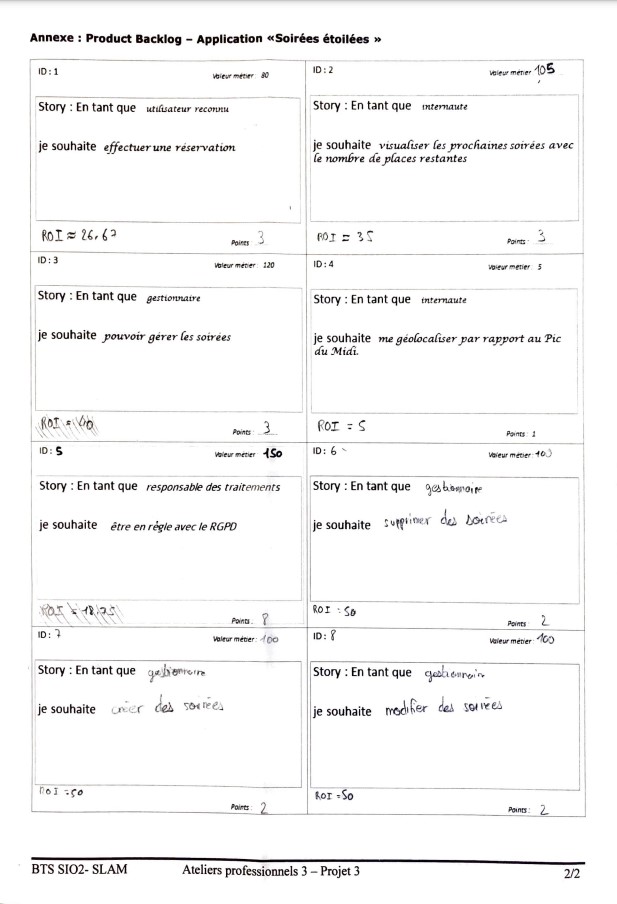 Annexe : Product Backlog – Application «Soirées étoilées »
ID : 1 Valeur métier 80
Story : En tant que utilisateur reconnu
je souhaite effectuer une réservation
ROI ≈ 26,67 Points 3
ID : 2 Valeur métier 105
Story : En tant que internaute
je souhaite visualiser les prochaines soirées avec
le nombre de places restantes
ROI = 35 Points : 3
ID : 3 Valeur métier : 120
Story : En tant que gestionnaire
je souhaite pouvoir gérer les soirées
ROI = 40 Points : 3
ID : 4 Valeur métier : 5
Story : En tant que internaute
je souhaite me géolocaliser par rapport au Pic
du Midi.
ROI = 5 Points : 1
ID : 5 Valeur métier 150
Story : En tant que responsable des traitements
je souhaite être en règle avec le RGPD
ROI = 18,75 Points : 8
ID : 6 Valeur métier : 100
Story : En tant que gestionnaire
je souhaite supprimer des soirées
ROI : 50 Points : 2
ID : 7 Valeur métier : 100
Story : En tant que gestionnaire
je souhaite créer des soirées
ROI = 50 Points : 2
ID : 8 Valeur métier : 100
Story : En tant que gestionnaire
je souhaite modifier des soirées
ROI = 50 Points : 2
BTS SIO2- SLAM Ateliers professionnels 3 – Projet 3 2/2